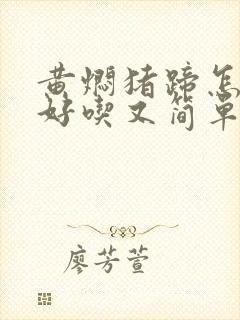 黄焖猪蹄怎
好喫又简单
廖芳萱